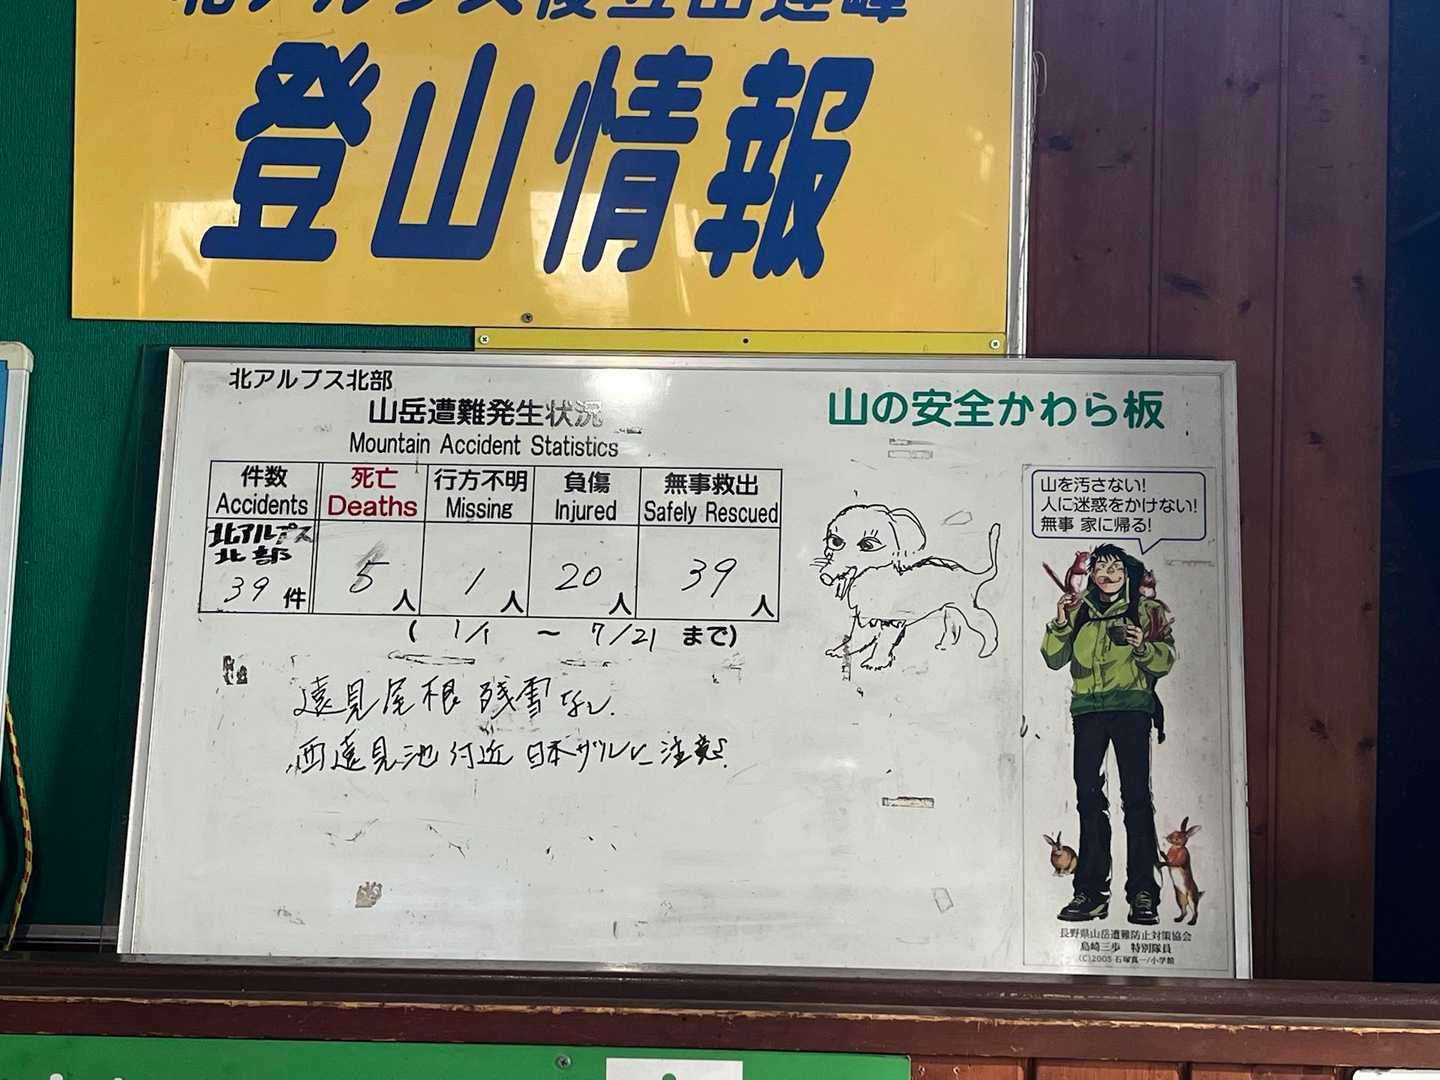 北アルプス後立山連峰
登山情報
北アルプス北部
山岳遭難発生状況
Mountain Accident Statistics
件数 死亡 行方不明 負傷 無事救出
Accidents Deaths Missing Injured Safely Rescued
北アルプス
北部
39件 5人 1人 20人 39人
( 1/1 〜 7/21 まで)
遠見尾根 残雪なし.
西遠見池付近 日本ザルに注意.
山の安全かわら板
山を汚さない!
人に迷惑をかけない!
無事 家に帰る!
長野県山岳遭難防止対策協会
島崎三歩 特別隊員
(C)2005 石塚真一/小学館